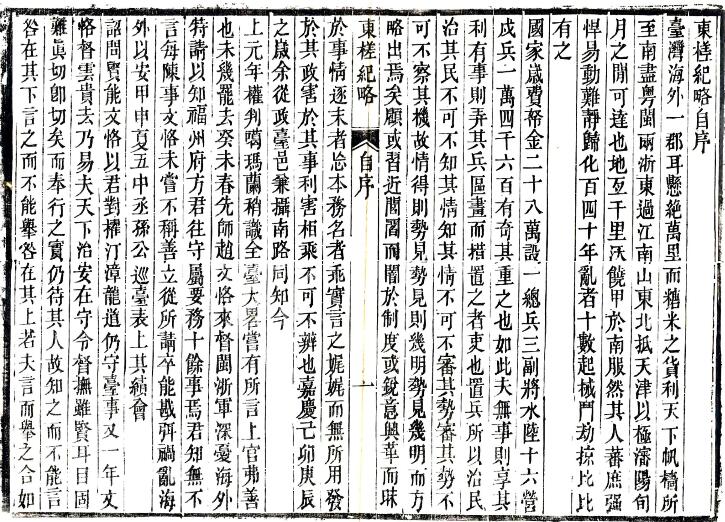 東槎紀略自序
臺灣海外一郡耳懸絕萬里而糖米之貨利天下帆檣所
至南盡粵閩兩浙東過江南山東北抵天津以極瀋陽旬
月之閒可達也地亙千里沃饒甲於南服然其人蕃庶強
悍易動難靜歸化百四十年亂者十數起械鬥劫掠比比
有之
國家歲費帑金二十八萬設一總兵三副將水陸十六營
戍兵一萬四千六百有奇其重之也如此夫無事則享其
利有事則弄其兵區畫而措置之者吏也置兵所以治民
治其民不可不知其情知其情不可不審其勢審其勢不
可不察其機故情得則勢見勢見則幾明勢見幾明而方
略出焉矣顧或習近闊畧而闇於制度或銳意興革而昧
東槎紀略
自序
一
於事情逐末者忘本務名者乖實言之娓娓而無所用發
於其政害於其事利害相乘不可不辨也嘉慶己卯庚辰
之歲余從政臺邑兼攝南路同知今
上元年權判噶瑪蘭稍識全臺大畧嘗有所言上官弗善
也未幾罷去癸未春先師趙文恪來督閩浙軍深憂海外
特請以知福州府方君往守屬要務十餘事焉君知無不
言每陳事文恪未嘗不稱善立從所請卒能戡弭禍亂海
外以安甲申夏五中丞孫公巡臺表上其績會
詔問賢能文恪以君對權汀漳龍道仍守臺事又一年文
恪督雲貴去乃易夫天下治安在守令督撫雖賢耳目固
難真切即切矣而奉行之實仍待其人故知之而不能言
咎在其下言之而不能舉咎在其上若夫言而舉之合如